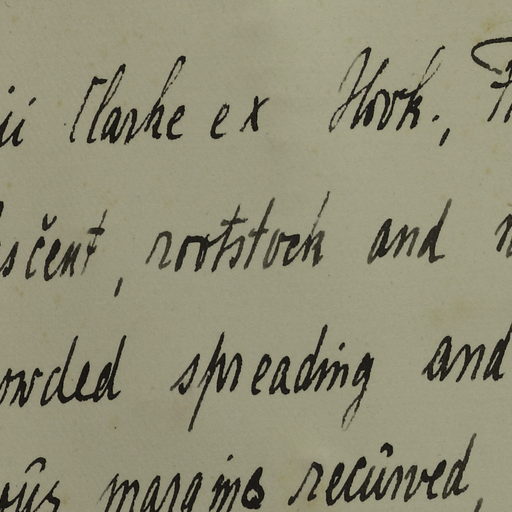 ii Clarke ex Hook.,
scent, rootstock and
owded spreading and
ous margins recurved,